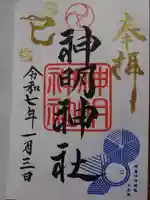 奉拝
神明神社
神明神社
巳
令和七年一月三日